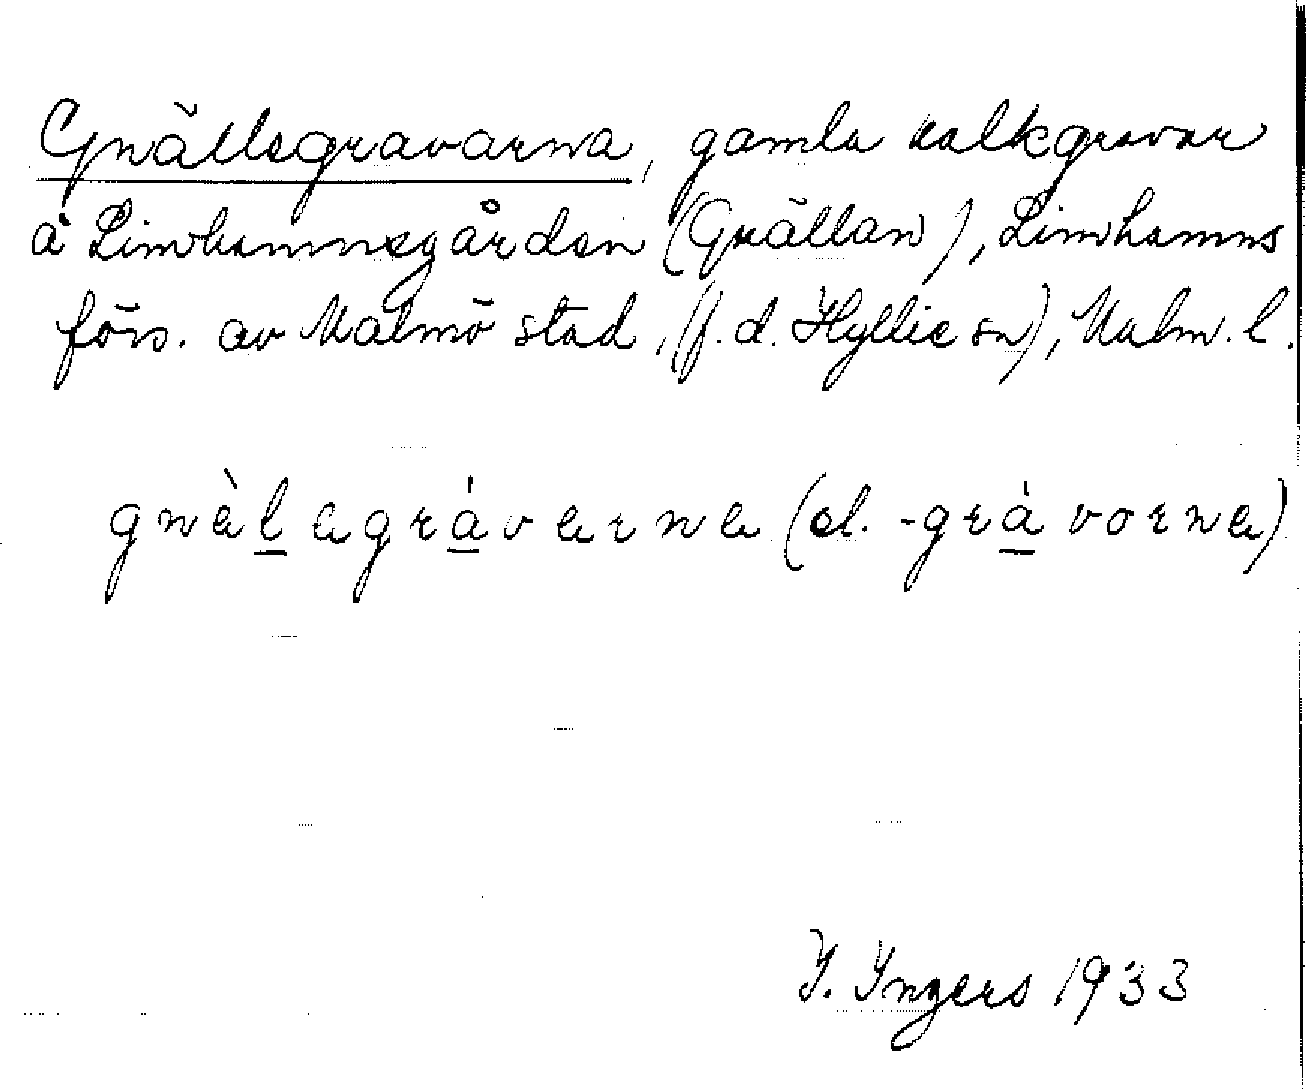 Gnällsgravarna, gamla kalkgravar
å Limhamnsgården (Gnällan), Limhamns
förs. av Malmö stad, (f.d. Hyllie sn), Malm. l.
gnàl̲agrá̲varna (el. -grá̲vorna)
I. Ingers 1933